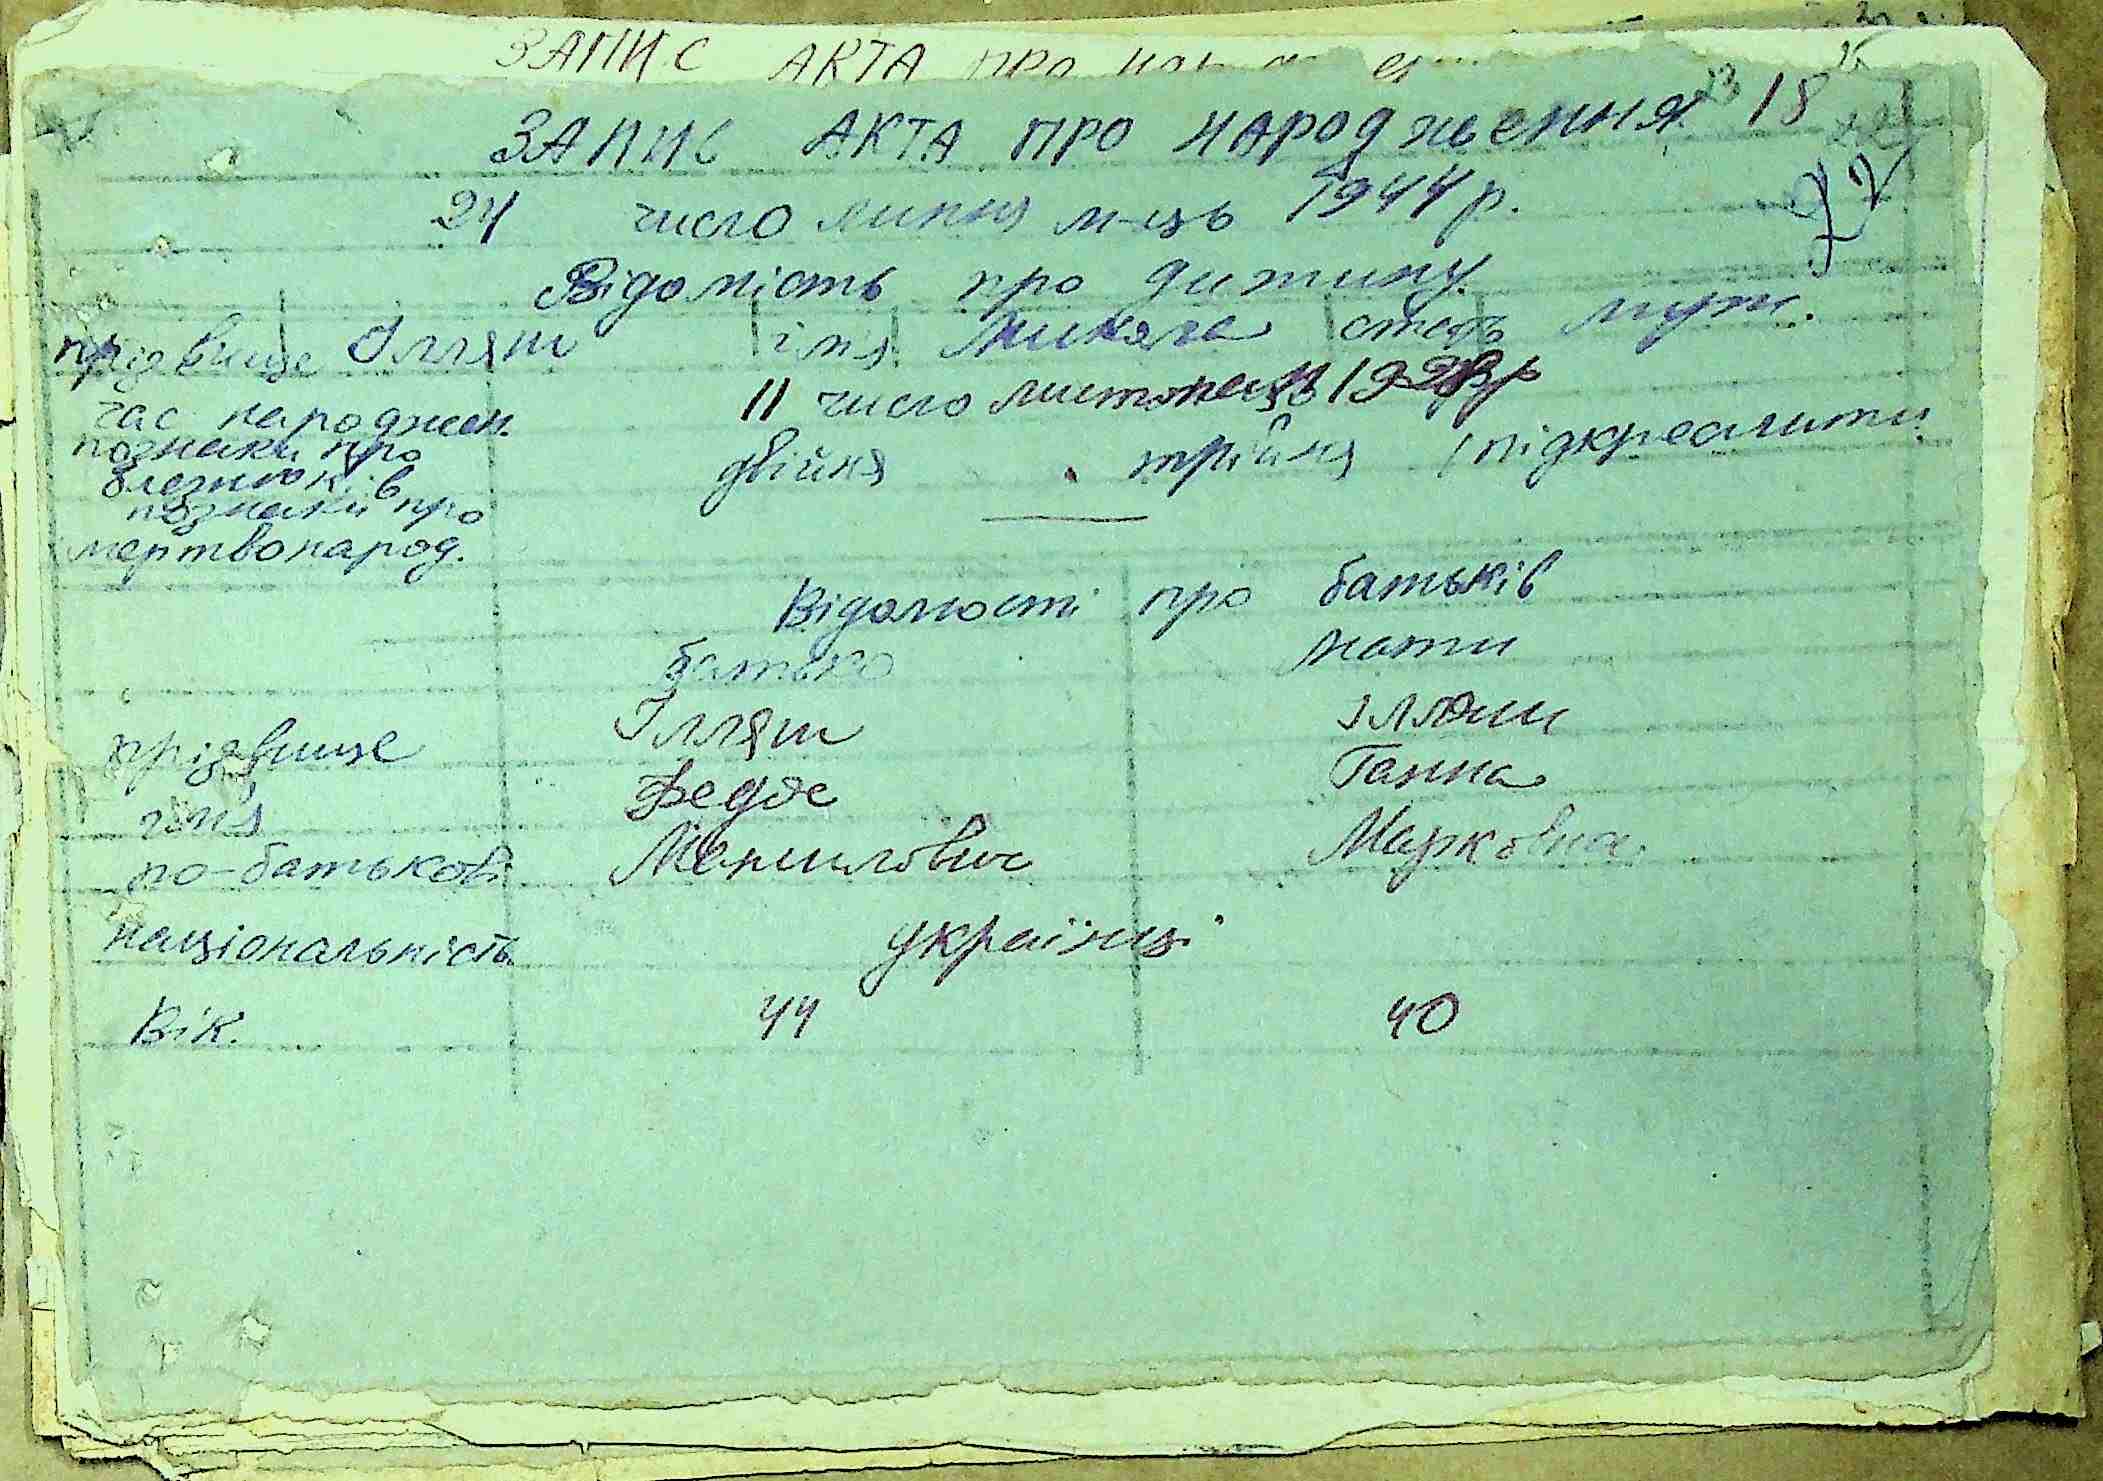 ЗАПИС АКТА ПРО
ЗАПИС АКТА ПРО НАРОДЖЕННЯ 18
72
24 число липня м-ць 1944 р.
Відомість про дитину
прізвище Ілляш ім'я Микола стать муж.
час народжен. 11 число листопад 1928 р
познаки про близнюків двійня трійня /підкреслити
познаки про
мертвонарод.
Відомості про батьків
батько мати
прізвище Ілляш Ілляш
ім'я Федос Ганна
по-батькові Манилович Марковна
національність українці
Вік. 44 40